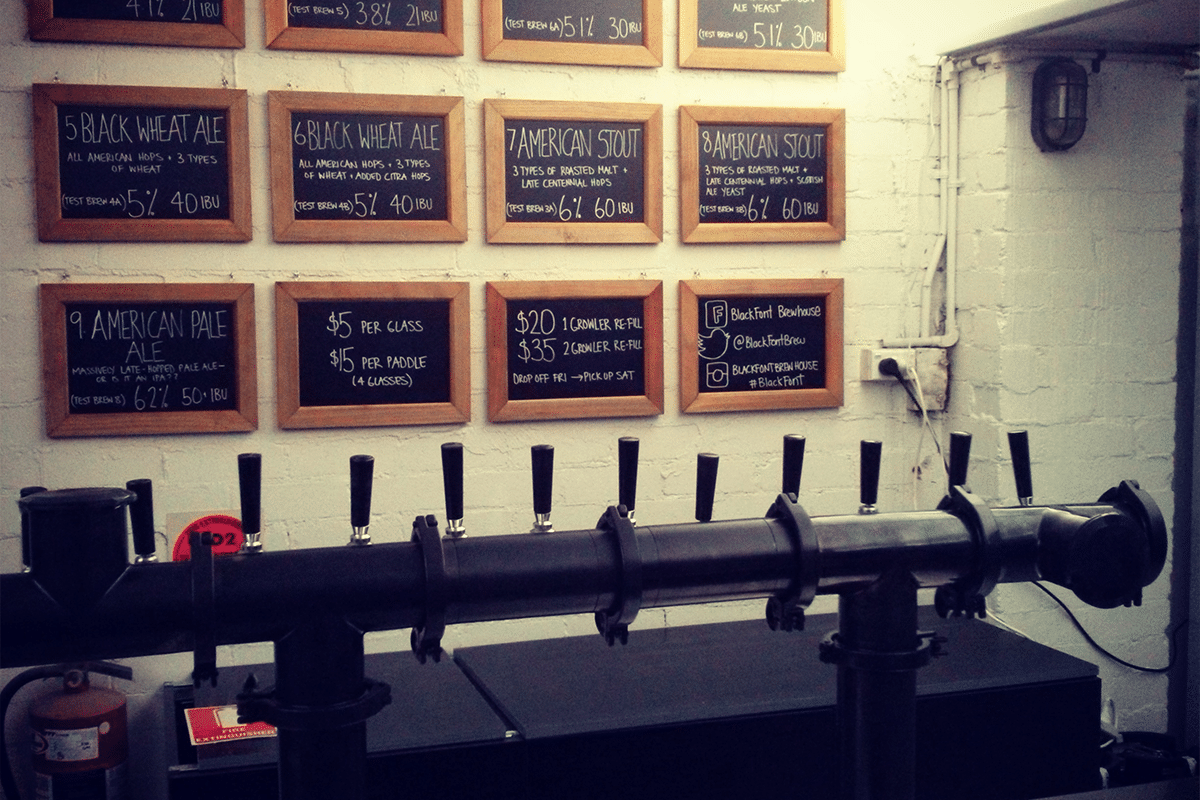 4.1% 21 IBU
(TEST BREW 5) 3.8% 21 IBU
(TEST BREW 6A) 5.1% 30 IBU
ALE YEAST
(TEST BREW 6B) 5.1% 30 IBU
5 BLACK WHEAT ALE
ALL AMERICAN HOPS + 3 TYPES
OF WHEAT
(TEST BREW 4A) 5% 40 IBU
6 BLACK WHEAT ALE
ALL AMERICAN HOPS + 3 TYPES
OF WHEAT + ADDED CITRA HOPS
(TEST BREW 4B) 5% 40 IBU
7 AMERICAN STOUT
3 TYPES OF ROASTED MALT +
LATE CENTENNIAL HOPS
(TEST BREW 3A) 6% 60 IBU
8 AMERICAN STOUT
3 TYPES OF ROASTED MALT +
LATE CENTENNIAL HOPS + SCOTTISH
ALE YEAST
(TEST BREW 3B) 6% 60 IBU
9. AMERICAN PALE
ALE
MASSIVELY LATE-HOPPED PALE ALE -
OR IS IT AN IPA??
(TEST BREW 8) 6.2% 50+ IBU
$5 PER GLASS
$15 PER PADDLE
(4 GLASSES)
$20 1 GROWLER RE-FILL
$35 2 GROWLER RE-FILL
DROP OFF FRI → PICK UP SAT
BLACKFONT BREWHOUSE
@BLACKFONTBREW
BLACKFONTBREWHOUSE
#BLACKFONT
CO2
FIRE
EXTINGUISHER